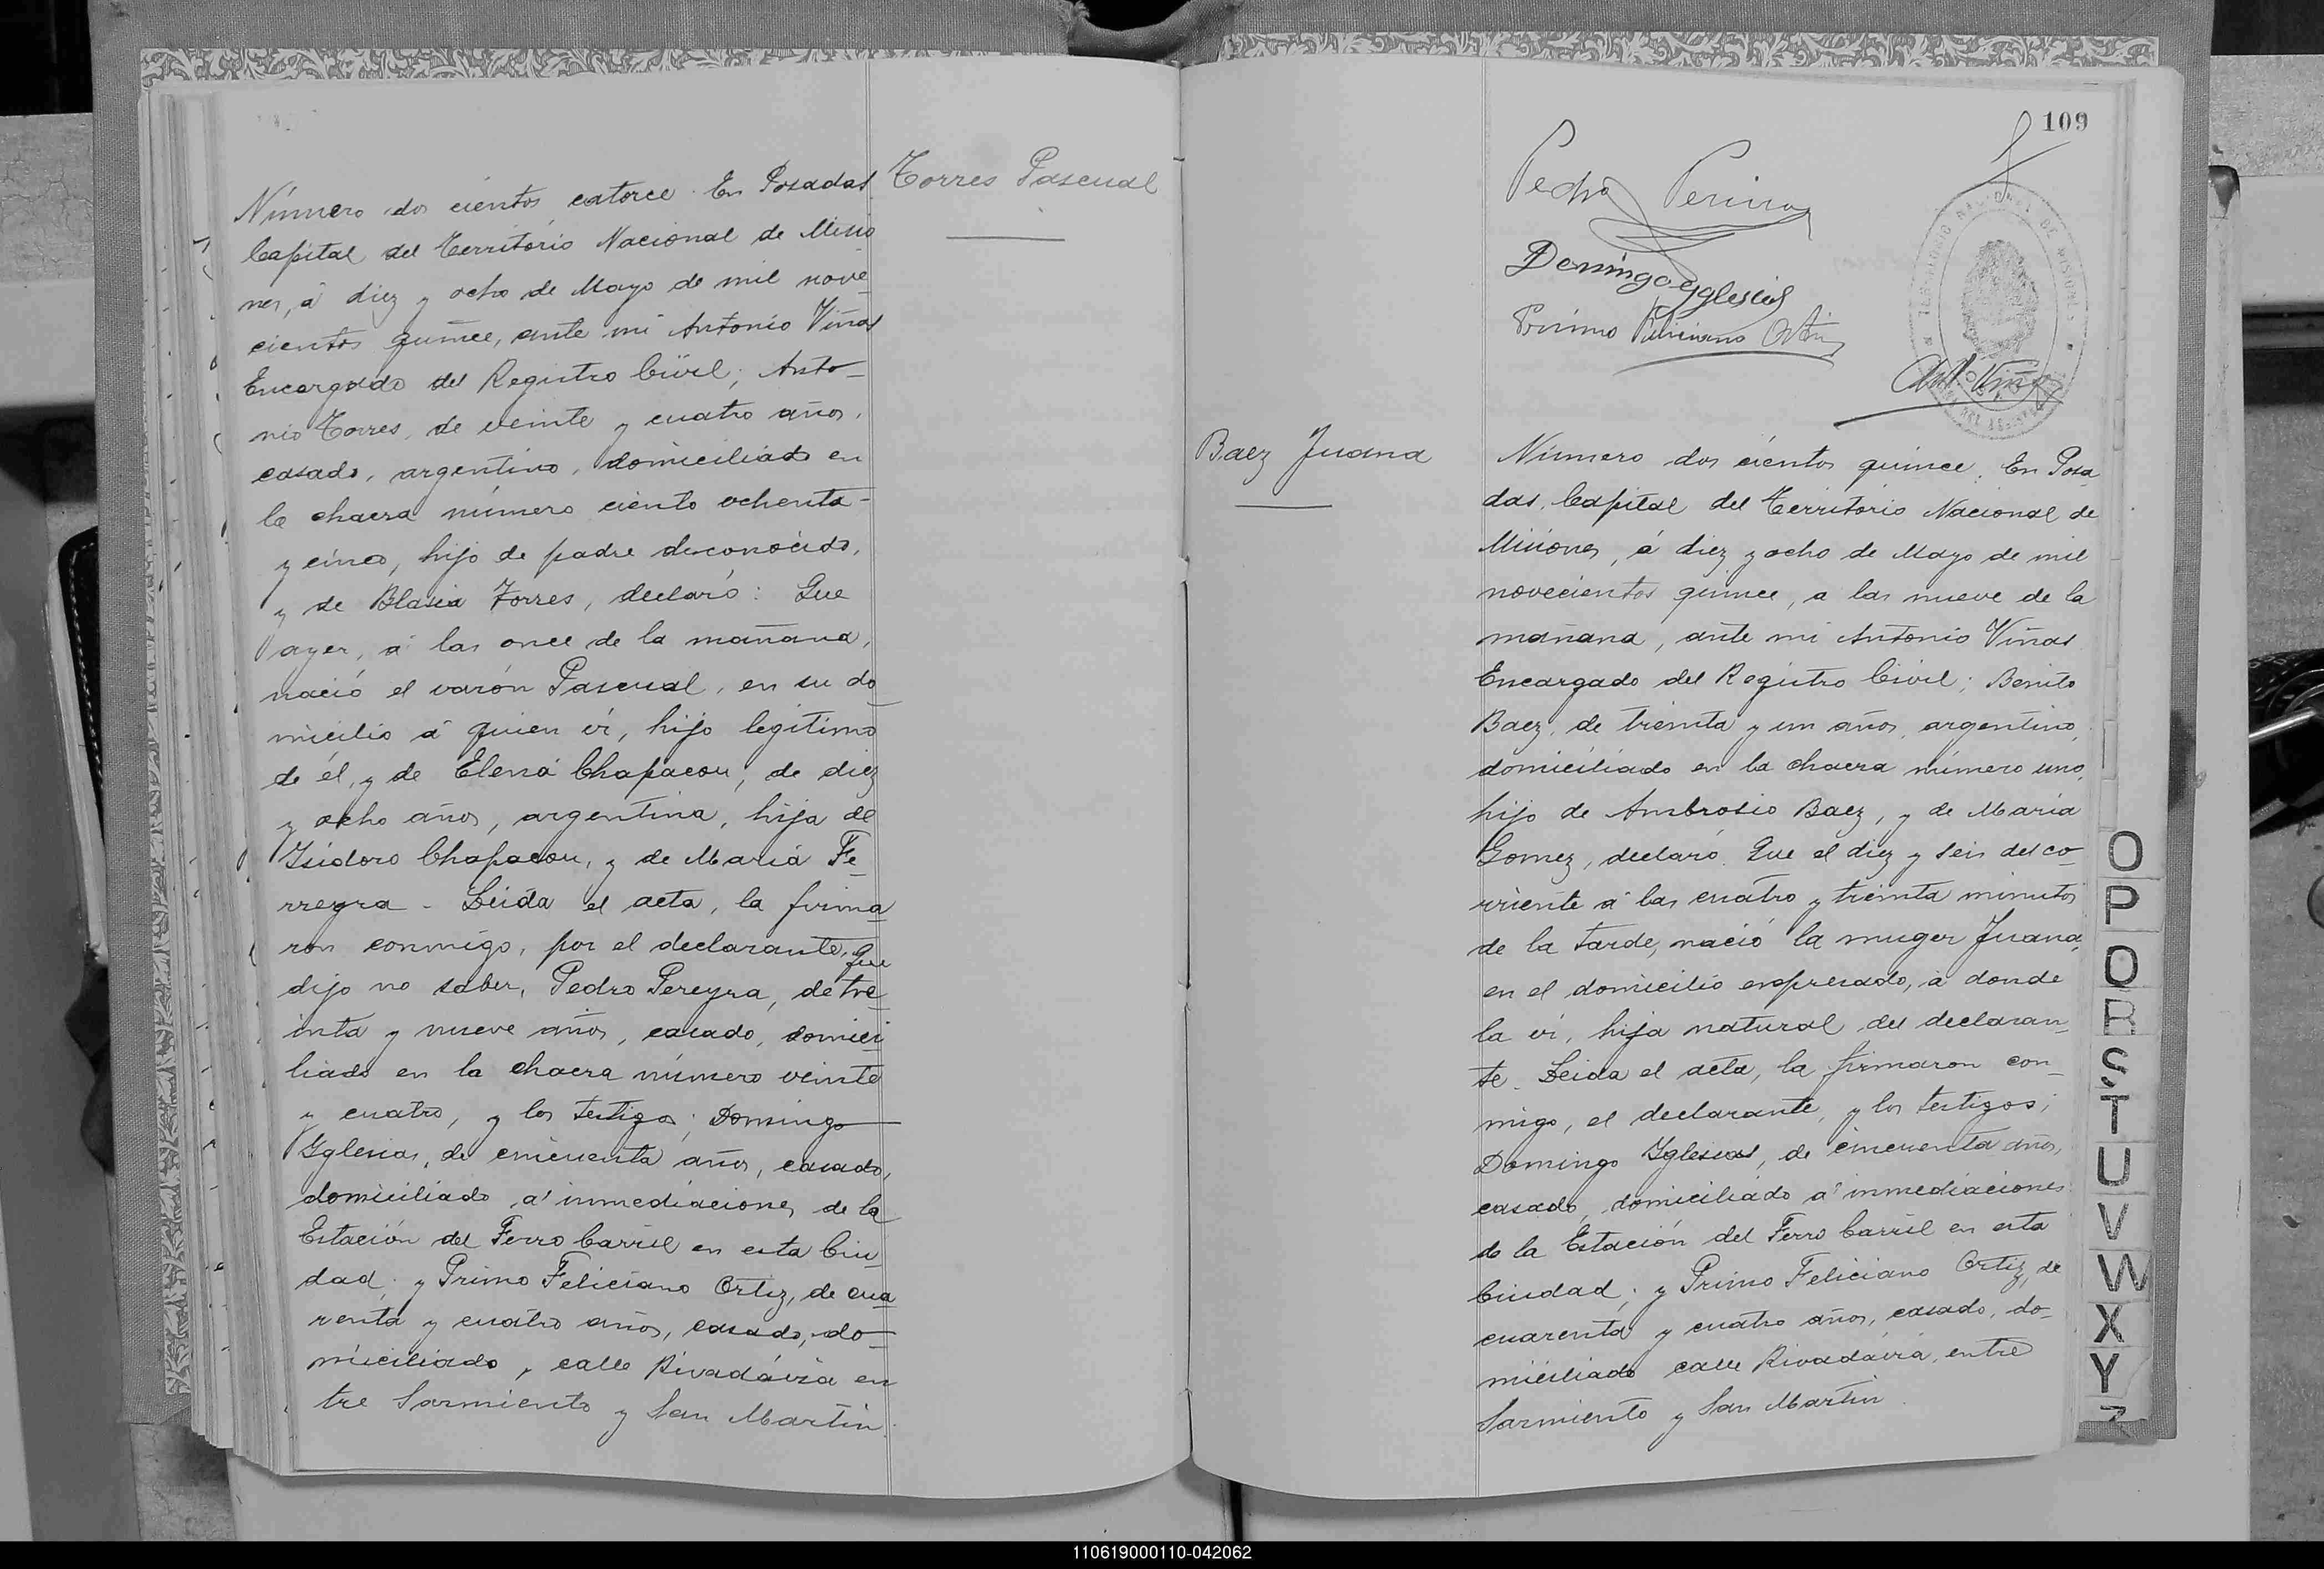 Torres Pascual
Número dos cientos catorce. En Posadas
Capital del Territorio Nacional de Misio
nes, á diez y ocho de Mayo de mil nove
cientos quince, ante mi Antonio Viñas
Encargado del Registro Civil; Anto-
nio Torres, de veinte y cuatro años,
casado, argentino, domiciliado en
la chacra número ciento ochenta-
y cinco, hijo de padre desconocido,
y de Blasia Torres, declaró: Que
ayer, á las once de la mañana,
nació el varón Pascual, en su do
micilio á quien ví, hijo legitimo
de él, y de Elena Chapacou, de diez
y ocho años, argentina, hija de
Isidoro Chapacou, y de Maria Fe
rreyra - Leida el acta, la firma
ron conmigo, por el declarante, que
dijo no saber, Pedro Pereyra, de tre
inta y nueve años, casado, domici
liado en la chacra número veinte
y cuatro, y los testigos; Domingo
Yglesias, de cincuenta años, casado,
domiciliado á inmediaciones de la
Estación del Ferro Carril en esta Ciu
dad; y Primo Feliciano Ortiz, de cua
renta y cuatro años, casado, do-
miciliado, calle Rivadavia en
tre Sarmiento y San Martin.
109
Pedro
Domingo Yglesias
Primo Feliciano Ortiz
Ant. Viñas
TERRITORIO NACIONAL DE MISIONES
Baez Juana
Número dos cientos quince. En Posa
das, Capital del Territorio Nacional de
Misiones, á diez y ocho de Mayo de mil
novecientos quince, a las nueve de la
mañana, ante mi Antonio Viñas
Encargado del Registro Civil; Benito
Baez, de treinta y un años, argentino,
domiciliado en la chacra número uno,
hijo de Ambrosio Baez, y de Maria
Gomez, declaró. Que el diez y seis del co-
rriente á las cuatro y treinta minutos
de la tarde, nació la muger Juana,
en el domicilio expresado, á donde
la ví, hija natural del declaran-
te. Leida el acta, la firmaron con-
migo, el declarante, y los testigos;
Domingo Yglesias, de cincuenta años,
casado, domiciliado á inmediaciones
de la Estación del Ferro Carril en esta
Ciudad; y Primo Feliciano Ortiz, de
cuarenta y cuatro años, casado, do-
miciliado calle Rivadavia, entre
Sarmiento y San Martin.
O
P
Q
R
S
T
U
V
W
X
Y
Z
110619000110-042062